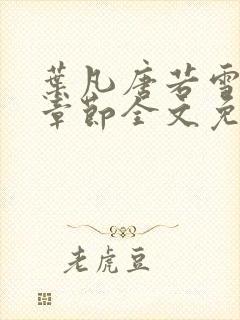 葉凡唐若雪
章節全文免
老虎豆